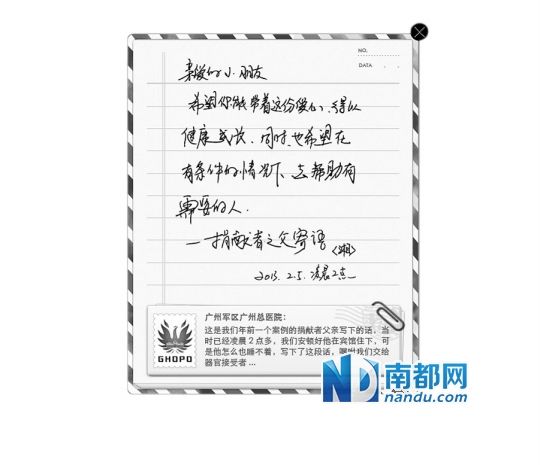 NO.
DATA . .
亲爱的小朋友
希望你能带着这份爱心，得以
健康成长，同时，也希望在
有条件的情况下、去帮助有
需要的人.
—捐献者之父寄语
2013. 2.5. 凌晨2点
GHOPO
广州军区广州总医院：
这是我们年前一个案例的捐献者父亲写下的话，当
时已经凌晨2点多，我们安顿好他在宾馆住下，可
是他怎么也睡不着，写下了这段话，嘱咐我们交给
器官接受者 ...
ND 南都网
nandu.com